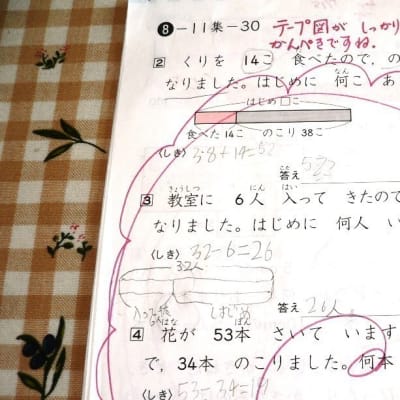 ❽－11集－30
テープ図が しっかり
かんぺきですね.
2 くりを 14こ 食べたので, の
なりました。はじめに 何こ あ
なん
はじめ□こ
食べた 14こ のこり 38こ
〈しき〉 38+14=52
答え
3 教室に 6人 入って きたので
きょうしつ にん はい
なりました。はじめに 何人 い
〈しき〉 32－6=26
32人
答え 26人
はじめ
4 花が 53本 さいて います
はな ぽん
で, 34本 のこりました。何本
〈しき〉 53－34=19